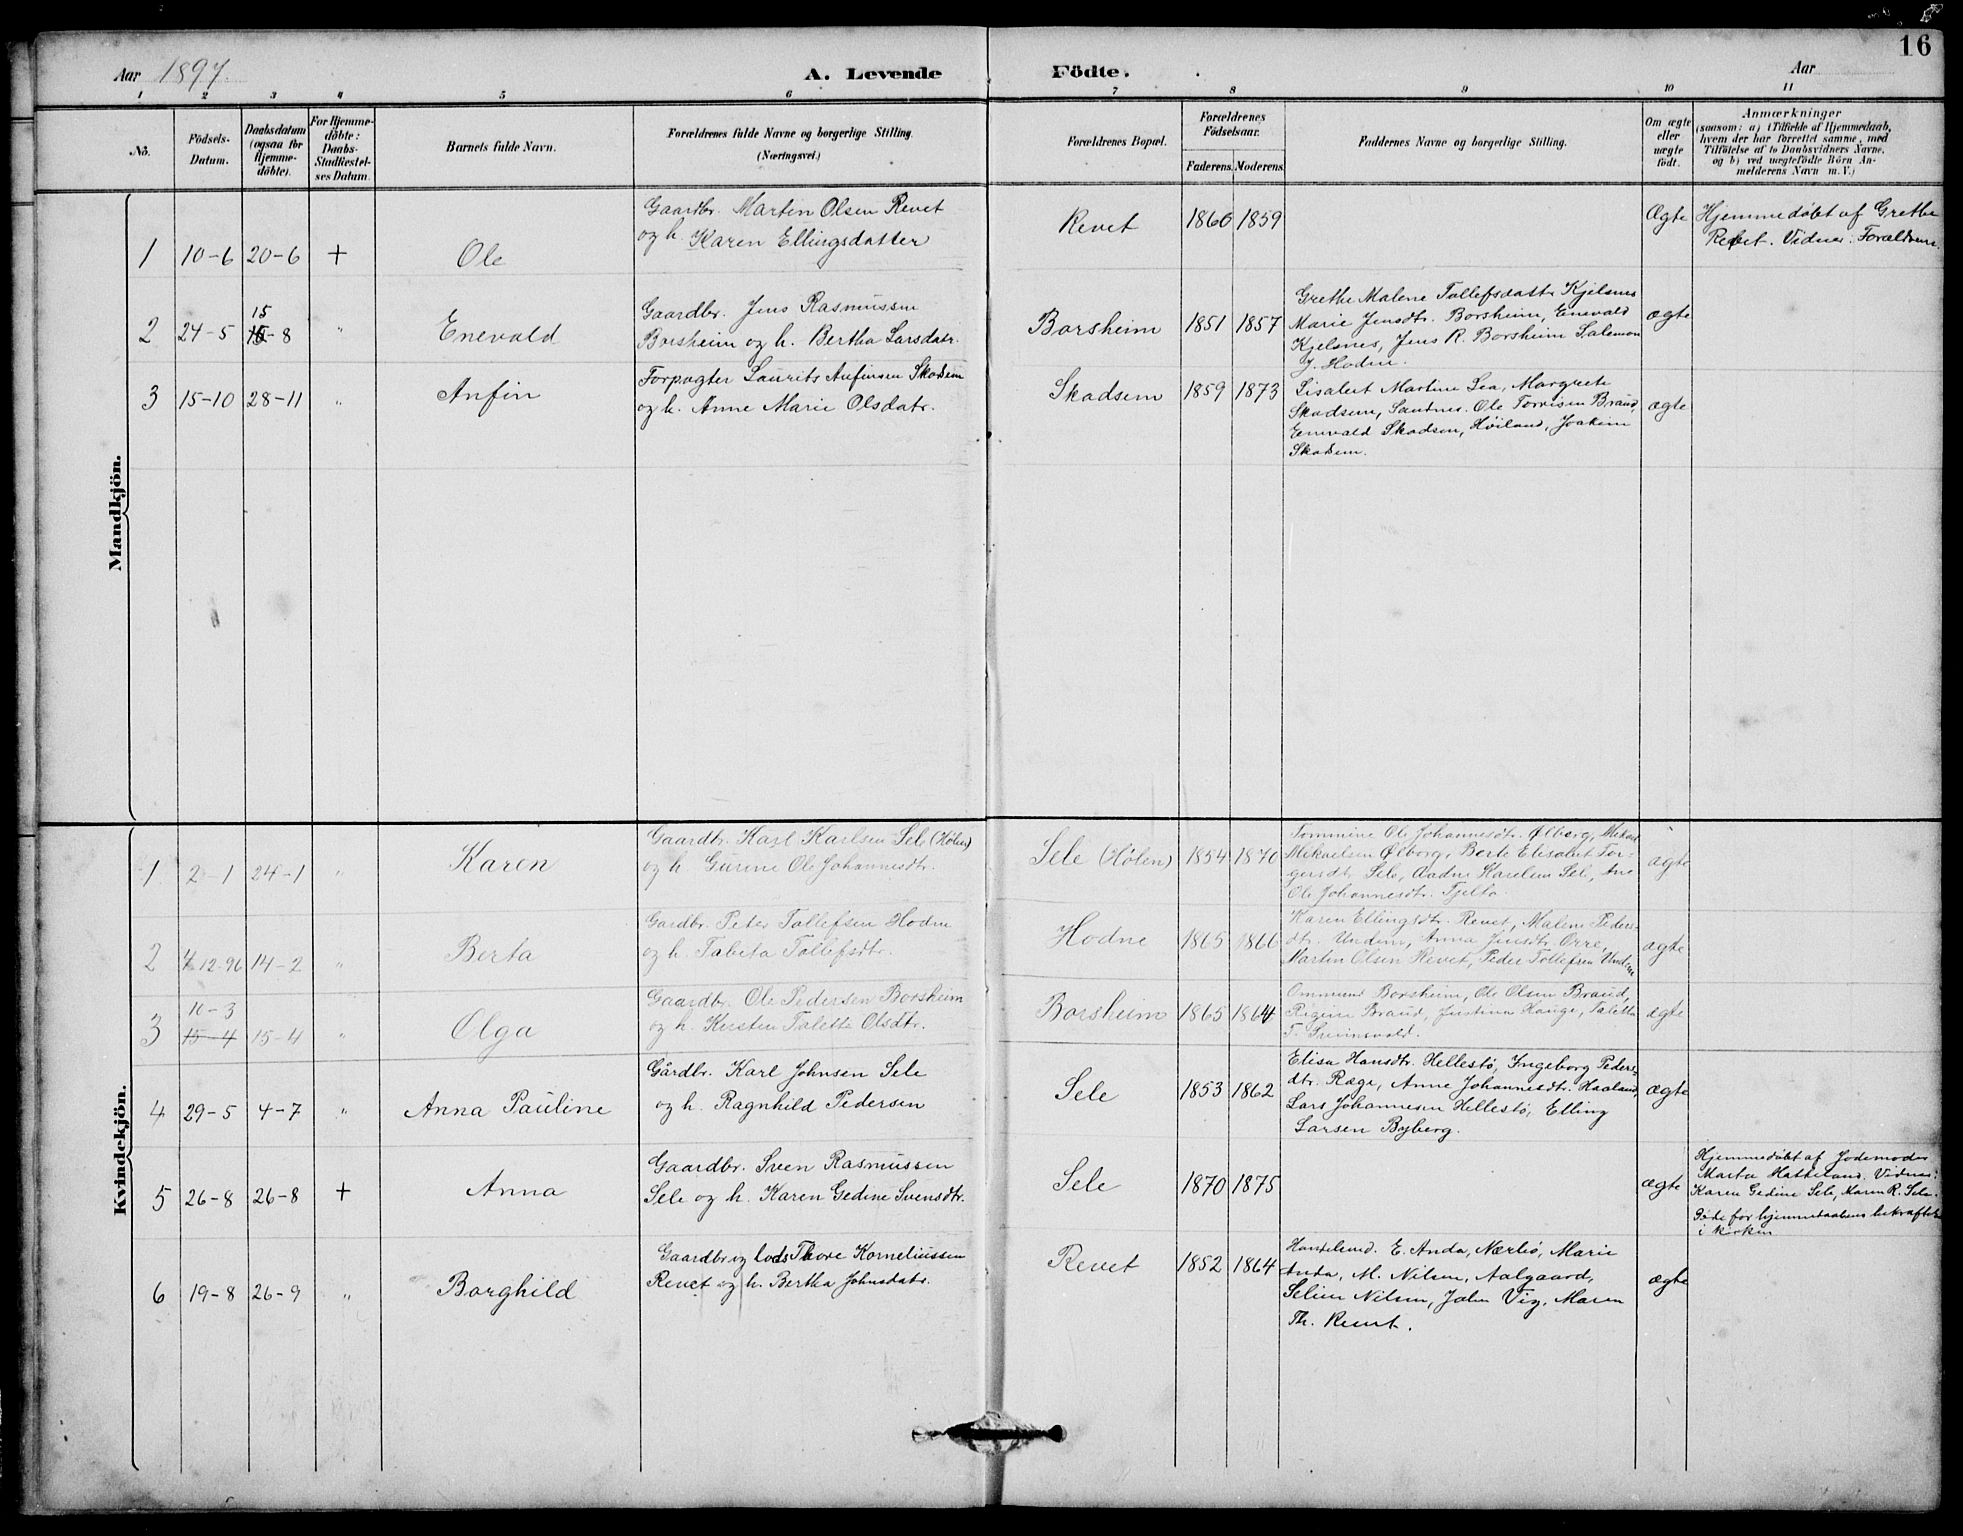 16
Aar 1897.
A. Levende Födte.
Aar
1 2 3 4 5 6 7 8 9 10 11
No.
Födsels-Datum.
Daabsdatum (ogsaa for Hjemme-döbte).
For Hjemme-döbte: Daabs-Stadfæstel-ses Datum.
Barnets fulde Navn.
Forældrenes fulde Navne og borgerlige Stilling.
(Næringsvei.)
Forældrenes Bopæl.
Forældrenes Födselsaar.
Faderens. Moderens.
Faddernes Navne og borgerlige Stilling.
Om ægte eller uægte födt.
Anmærkninger
(saasom: a) i Tilfælde af Hjemmedaab,
hvem der har forrettet samme, med
Tilföielse af to Daabsvidners Navne,
og b) ved uægtefödte Börn An-
melderens Navn m. V.)
Mandkjön.
1 10-6 20-6 + Ole
Gaardbr. Martin Olsen Revet
og h. Karen Ellingsdatter
Revet 1860 1859
Ægte
Hjemmedøbt af Grethe
Revet. Vidner: Forældrene.
2 24-5 15-8 " Enevald
Gaardbr. Jens Rasmussen
Borsheim og h. Bertha Larsdatr.
Borsheim 1851 1857
Grethe Malene Tollefsdattr Kjelsnes
Marie Jensdtr. Borsheim, Enevald
Kjelsnes, Jens R. Borsheim Salemon
J. Hodne.
ægte
3 15-10 28-11 " Anfin
Forpagter Laurits Anfinsen Skadsem
og h. Anne Marie Olsdatr.
Skadsem 1859 1873
Lisabet Martine Lea, Margrete
Skadsem, Sandnes. Ole Torrisen Braud,
Enevald Skadsem, Høiland, Joakim
Skadsem.
ægte
Kvindekjön.
1 2-1 24-1 " Karen
Gaardbr. Karl Karlsen Sele (Hølen)
og h. Gurine Ole Johannesdtr.
Sele (Hølen) 1854 1870
Tommine Ole Johannesdtr. Ølberg, Mikael
Mikaelsen Ølborg, Berte Elisabet Tor-
gersdtr Sele, Aadne Karlsen Sele, Ane
Ole Johannesdtr. Tjelta.
ægte
2 12-96 14-2 " Berta
Gardbr. Peter Tollefsen Hodne
og h. Tabita Tollefsdtr.
Hodne 1865 1866
Karen Ellingsdtr. Revet, Malene Peders-
dtr. Undem, Anna Jensdtr. Orre,
Martin Olsen Revet, Peder Tollefsen Undem
ægte
10-3
3 15-4 15-4 " Olga
Gaardbr. Ole Pedersen Borsheim
og h. Kirsten Taletta Olsdtr.
Borsheim 1865 1864
Ommund Borsheim, Ole Olsen Braud,
Rigine Braud, Justina Hauge, Taletta
T.
ægte
4 29-5 4-7 " Anna Pauline
Gårdbr. Karl Johnsen Sele
og h. Ragnhild Pedersen
Sele 1853 1862
Elisa Hansdtr. Hellestø, Ingeborg Peders-
dtr. Ræge, Anne Johannesdtr. Haaland,
Lars Johannesen Hellestø, Elling
Larsen Byberg.
ægte
5 26-8 26-8 + Anna
Gaardbr. Sven Rasmussen
Sele og h. Karen Gedine Svensdtr.
Sele 1870 1875
ægte
Hjemmedøbt af Jodemoder
Marta Hatteland. Vidner:
Karen Gedine Sele, Maren R. Sele.
Døde før hjemmedaabens bekræftelse
i kirken
6 19-8 26-9 " Borghild
Gaardbr og lods Thore Korneliussen
Revet og h. Bertha Johnsdatr.
Revet 1852 1864
E. Anda, Nærbø, Marie
Anda, M. Nilsen, Aalgaard,
Seline Nilsen, John Vig, Maren
Th. Revet.
ægte